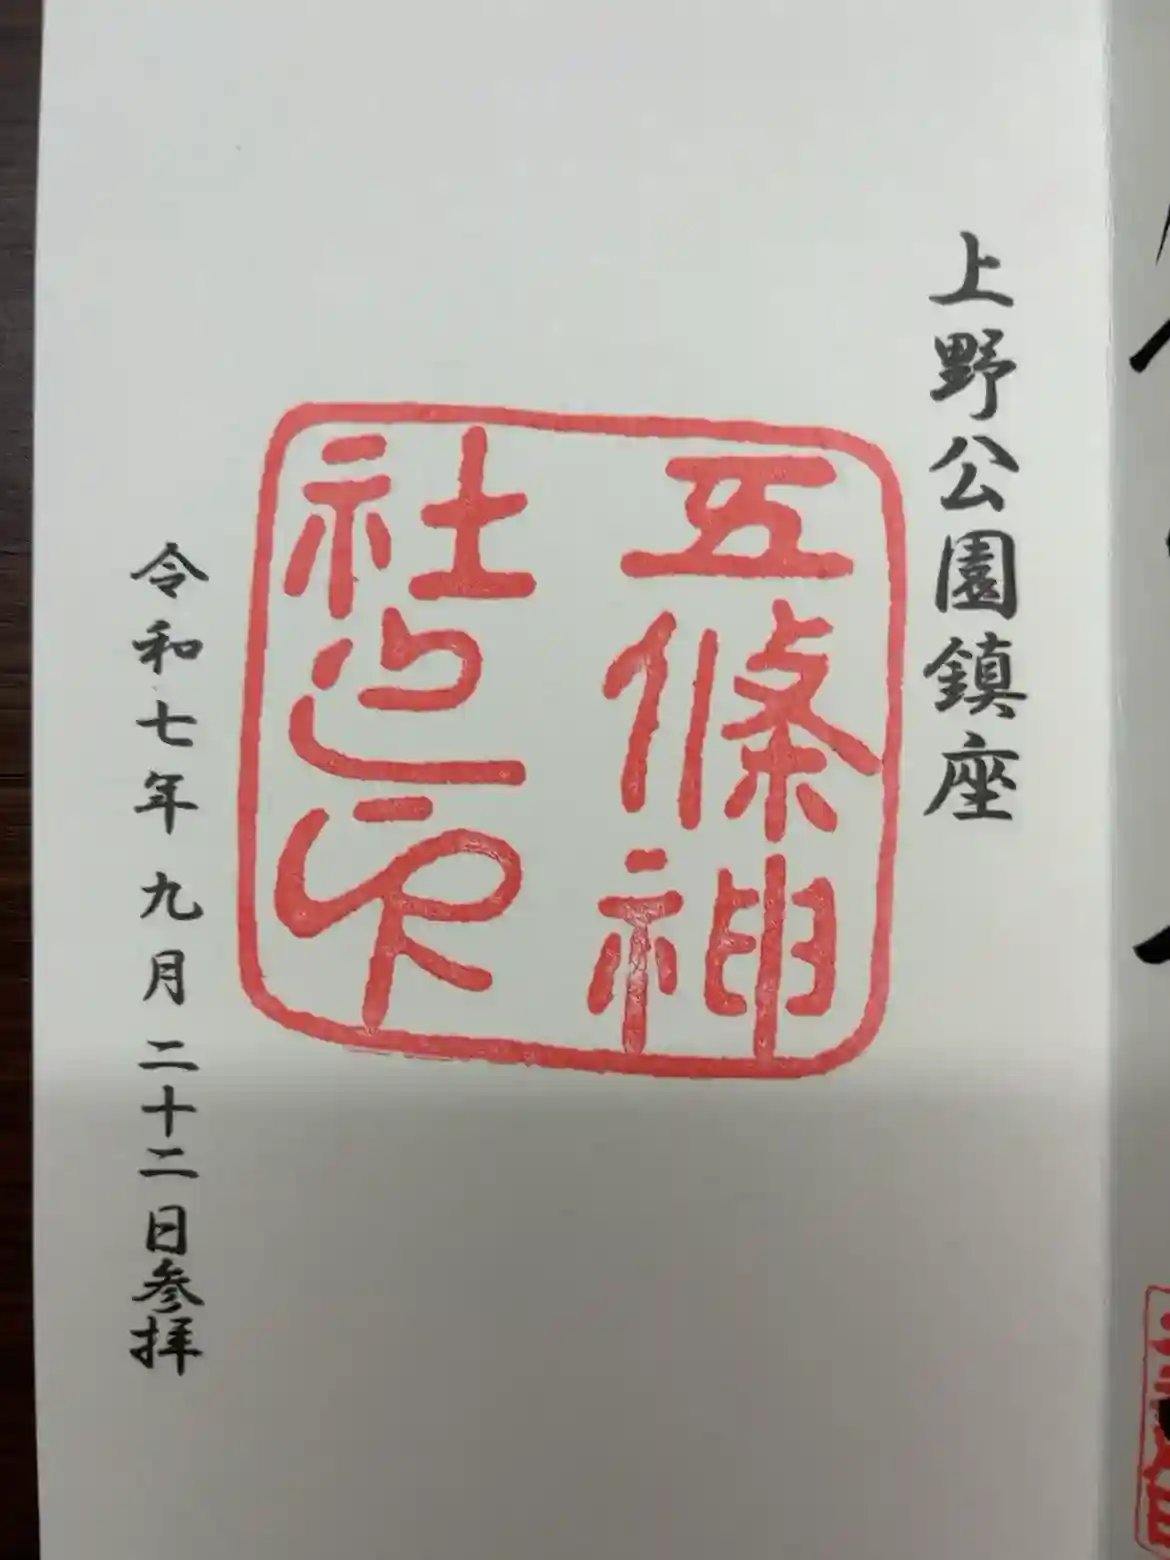 上野公園鎮座
五條神
社之印
令和七年九月二十二日参拝